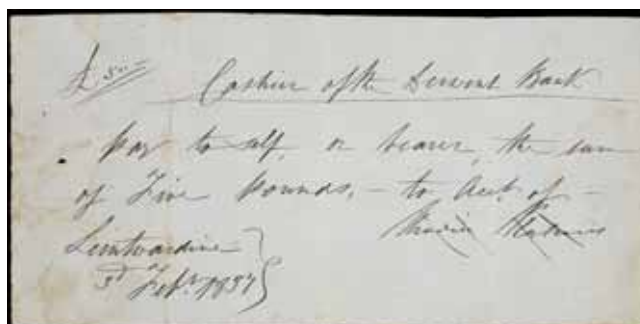 £5"-"-
Cashier of the Derwent Bank
Pay to self, or bearer, the sum
of Five Pounds, - to Acct. of -
3d Feby. 1837